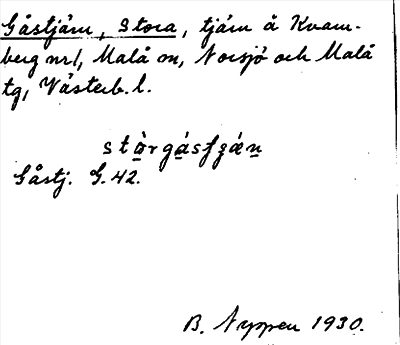 Gåstjärn, Stora, tjärn å Kvam-
berg nr 1, Malå sn, Norsjö och Malå
tg, Västerb. l.
stòrgásʃʒǽn
Gåstj. G. 42.
B. Nyppen 1930.